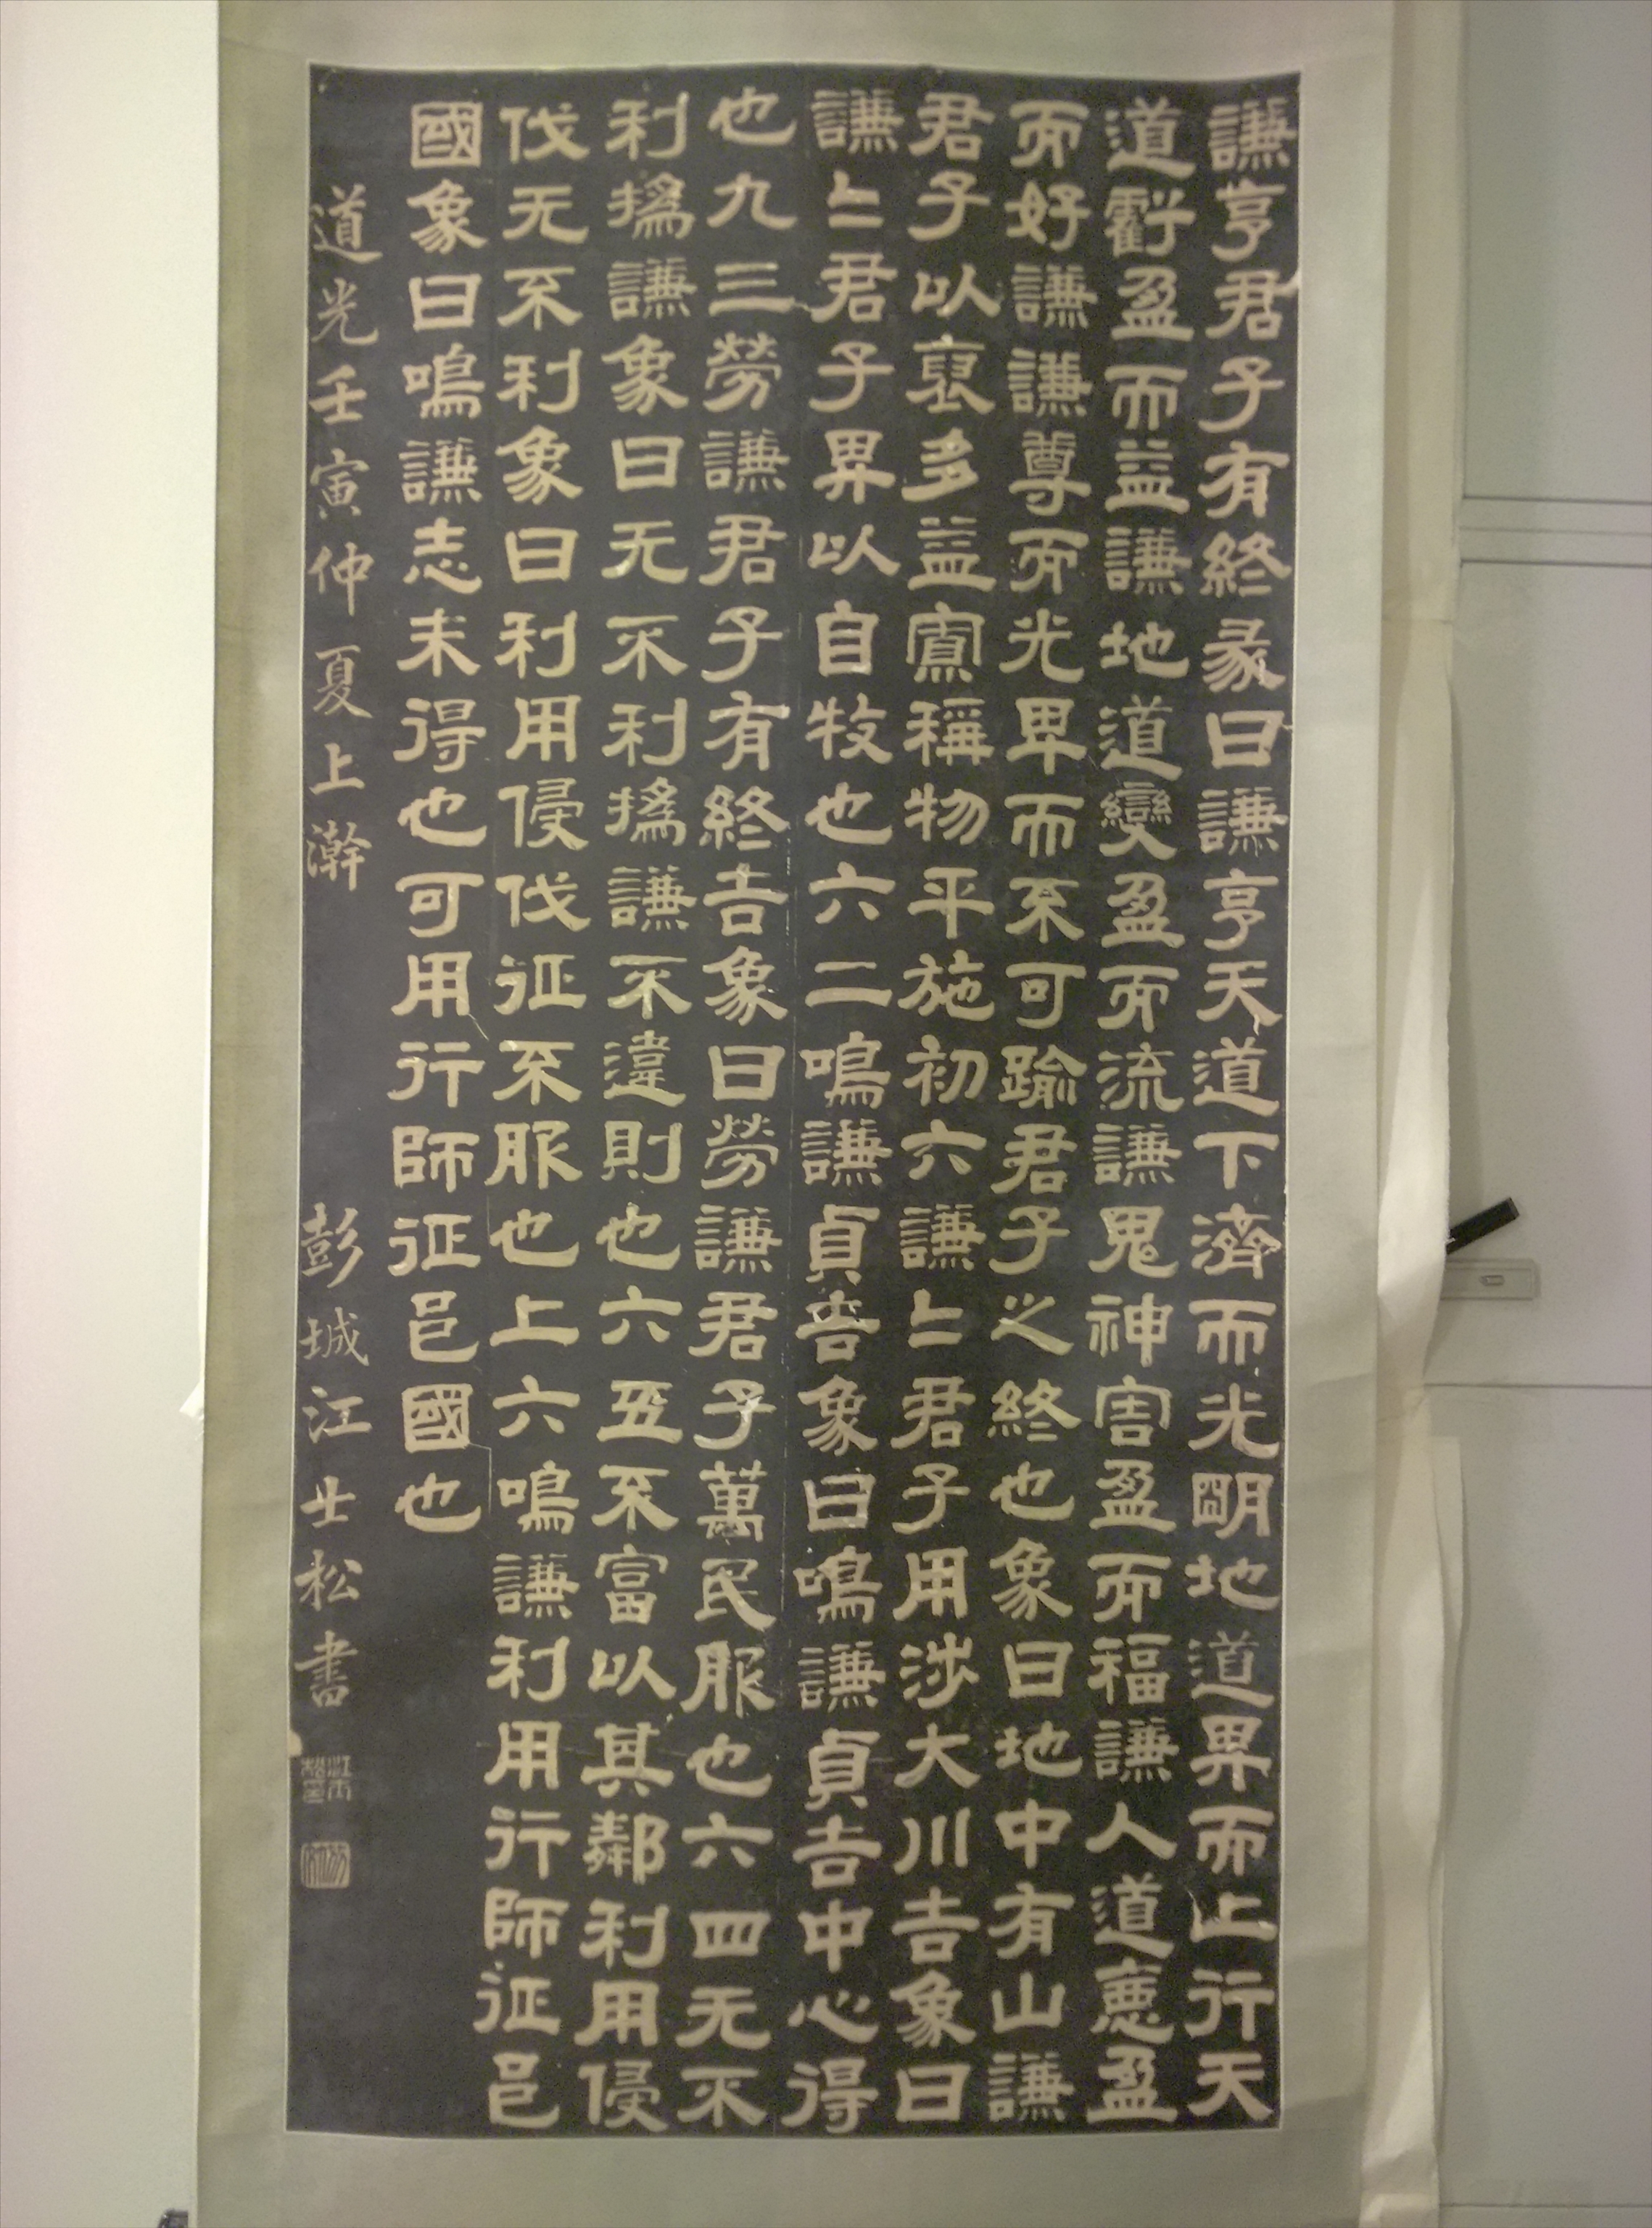 謙亨君子有終彖曰謙亨天道下濟而光朙地道卑而上行天
道虧盈而益謙地道變盈而流謙鬼神害盈而福謙人道惡盈
而好謙謙尊而光卑而不可踰君子之終也象曰地中有山謙
君子以裒多益寡稱物平施初六謙〻君子用涉大川吉象曰
謙〻君子卑以自牧也六二鳴謙貞吉象曰鳴謙貞吉中心得
也九三勞謙君子有終吉象曰勞謙君子萬民服也六四无不
利撝謙象曰无不利撝謙不違則也六五不富以其鄰利用侵
伐无不利象曰利用侵伐征不服也上六鳴謙利用行師征邑
國象曰鳴謙志未得也可用行師征邑國也
道光壬寅仲夏上澣 彭城江士松書
江士松印